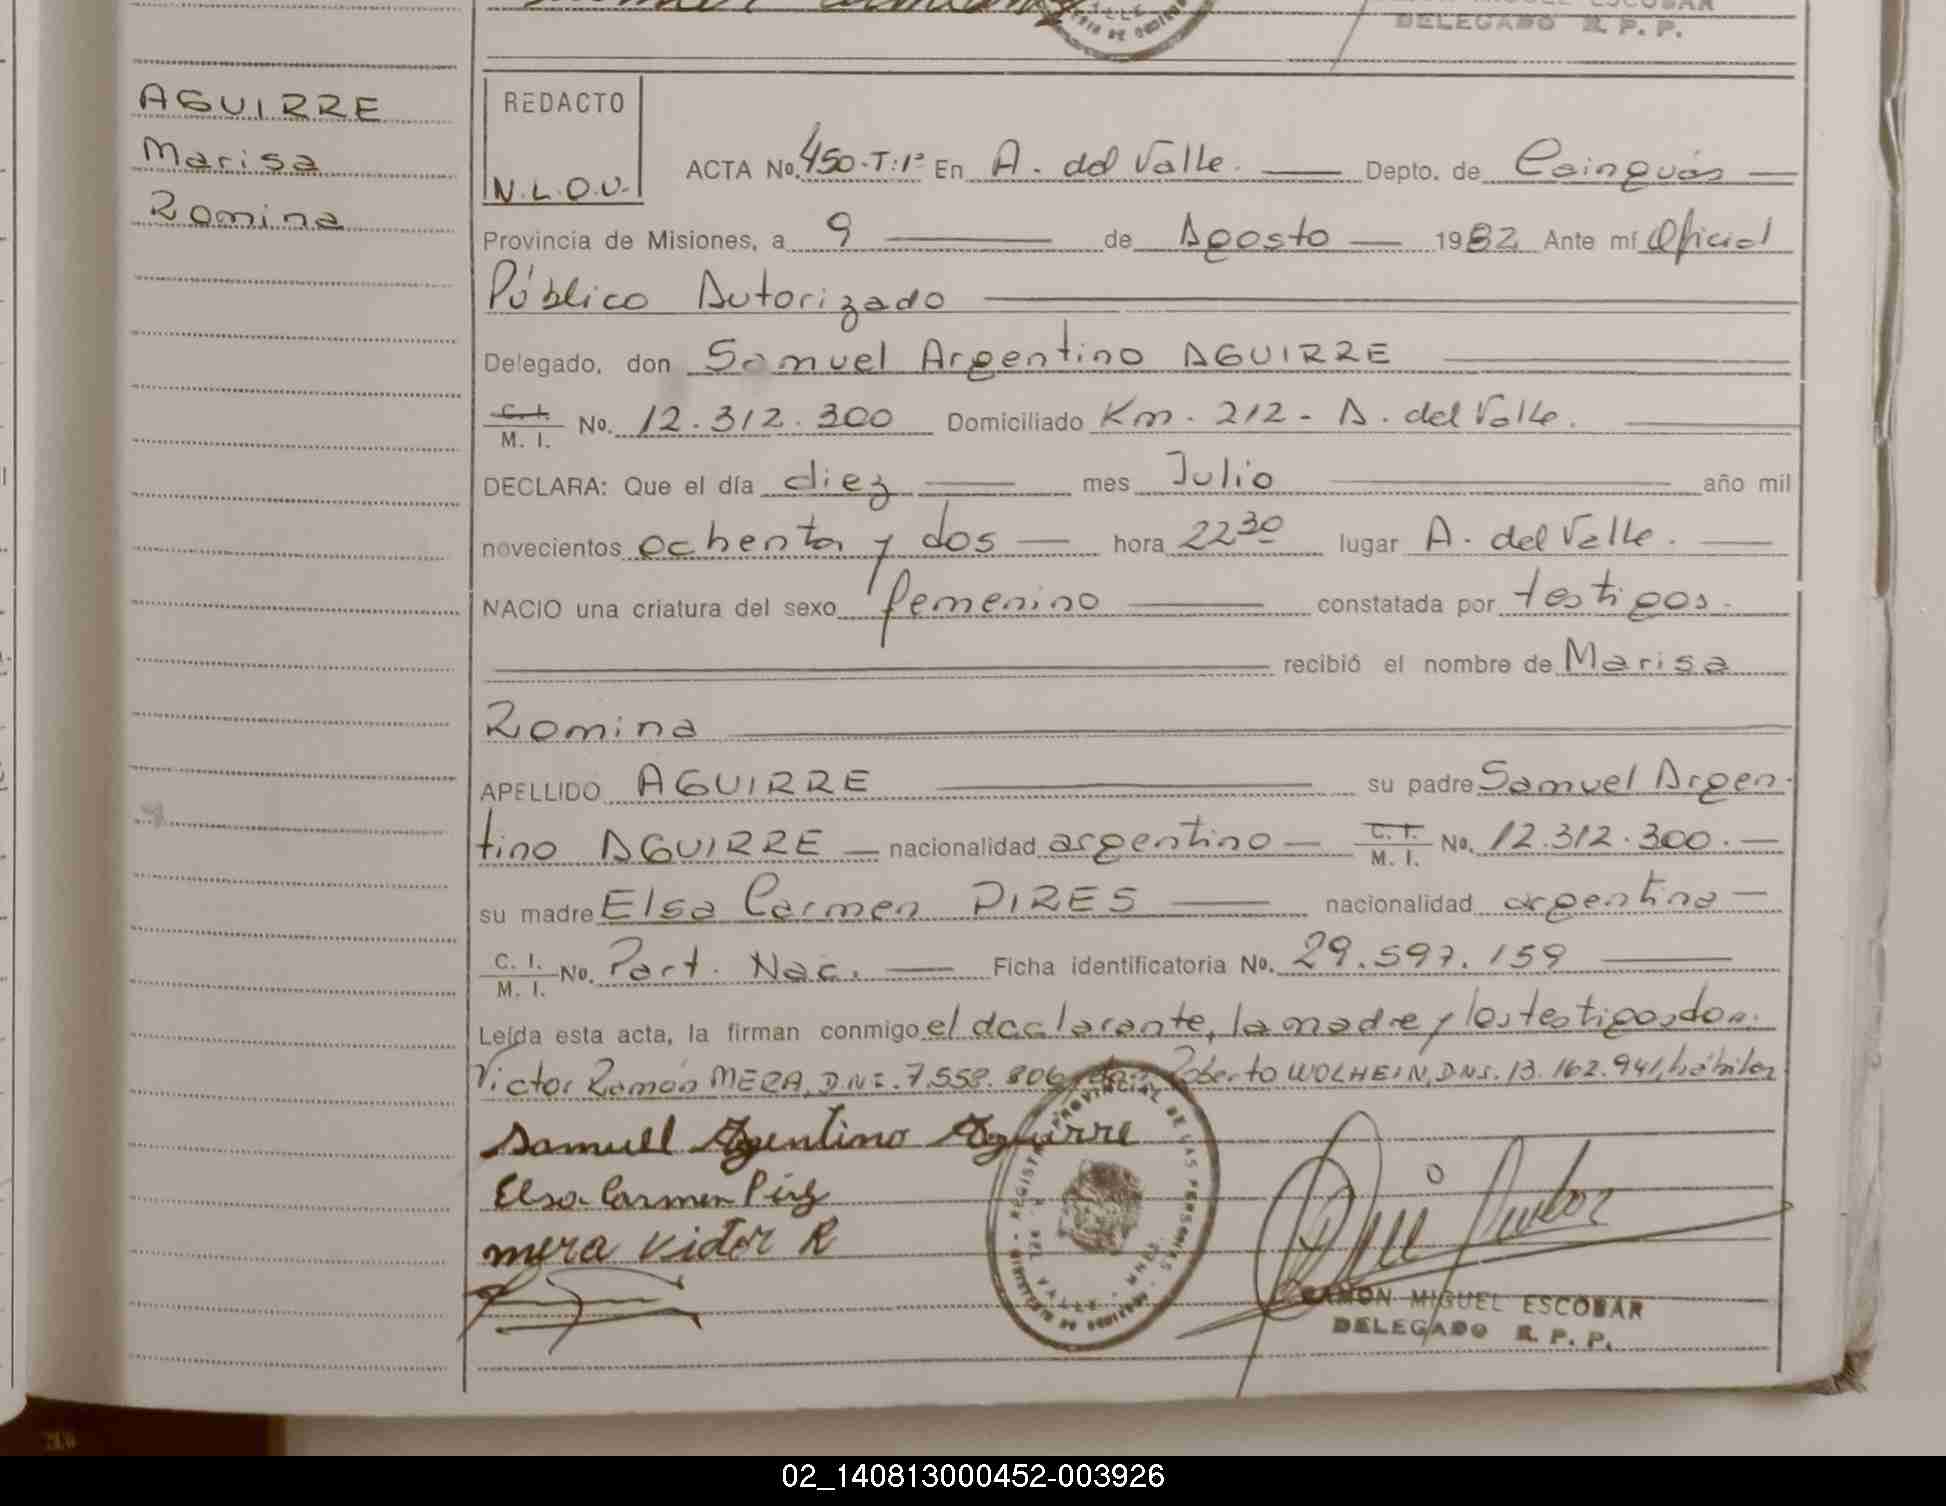 DELEGADO R. P. P.
AGUIRRE
Marisa
Romina
REDACTO
N.L.O.V.
ACTA No. 450-T:1º En A. del Valle. Depto. de Cainguás
Provincia de Misiones, a 9 de Agosto 1982 Ante mí Oficial
Público Autorizado
Delegado, don Samuel Argentino AGUIRRE
C. I. M. I. No. 12.312.300 Domiciliado Km. 212 - A. del Valle.
DECLARA: Que el día diez mes Julio año mil
novecientos ochenta y dos hora 22 30 lugar A. del Valle.
NACIO una criatura del sexo femenino constatada por testigos.
recibió el nombre de Marisa
Romina
APELLIDO AGUIRRE su padre Samuel Argen-
tino AGUIRRE nacionalidad argentino C. I. M. I. No. 12.312.300.
su madre Elsa Carmen PIRES nacionalidad argentina
C. I. M. I. No. Part. Nac. Ficha identificatoria No. 29.597.159
Leída esta acta, la firman conmigo el declarante, la madre y los testigos, don
Victor Ramón MERA, D.N.I. 7.558.806, don Roberto WOLHEIN, D.N.I. 13.162.941, hábiles
Samuel Argentino Aguirre
Elsa Carmen Pires
mera victor R
RAMON MIGUEL ESCOBAR
DELEGADO R. P. P.
02_140813000452-003926